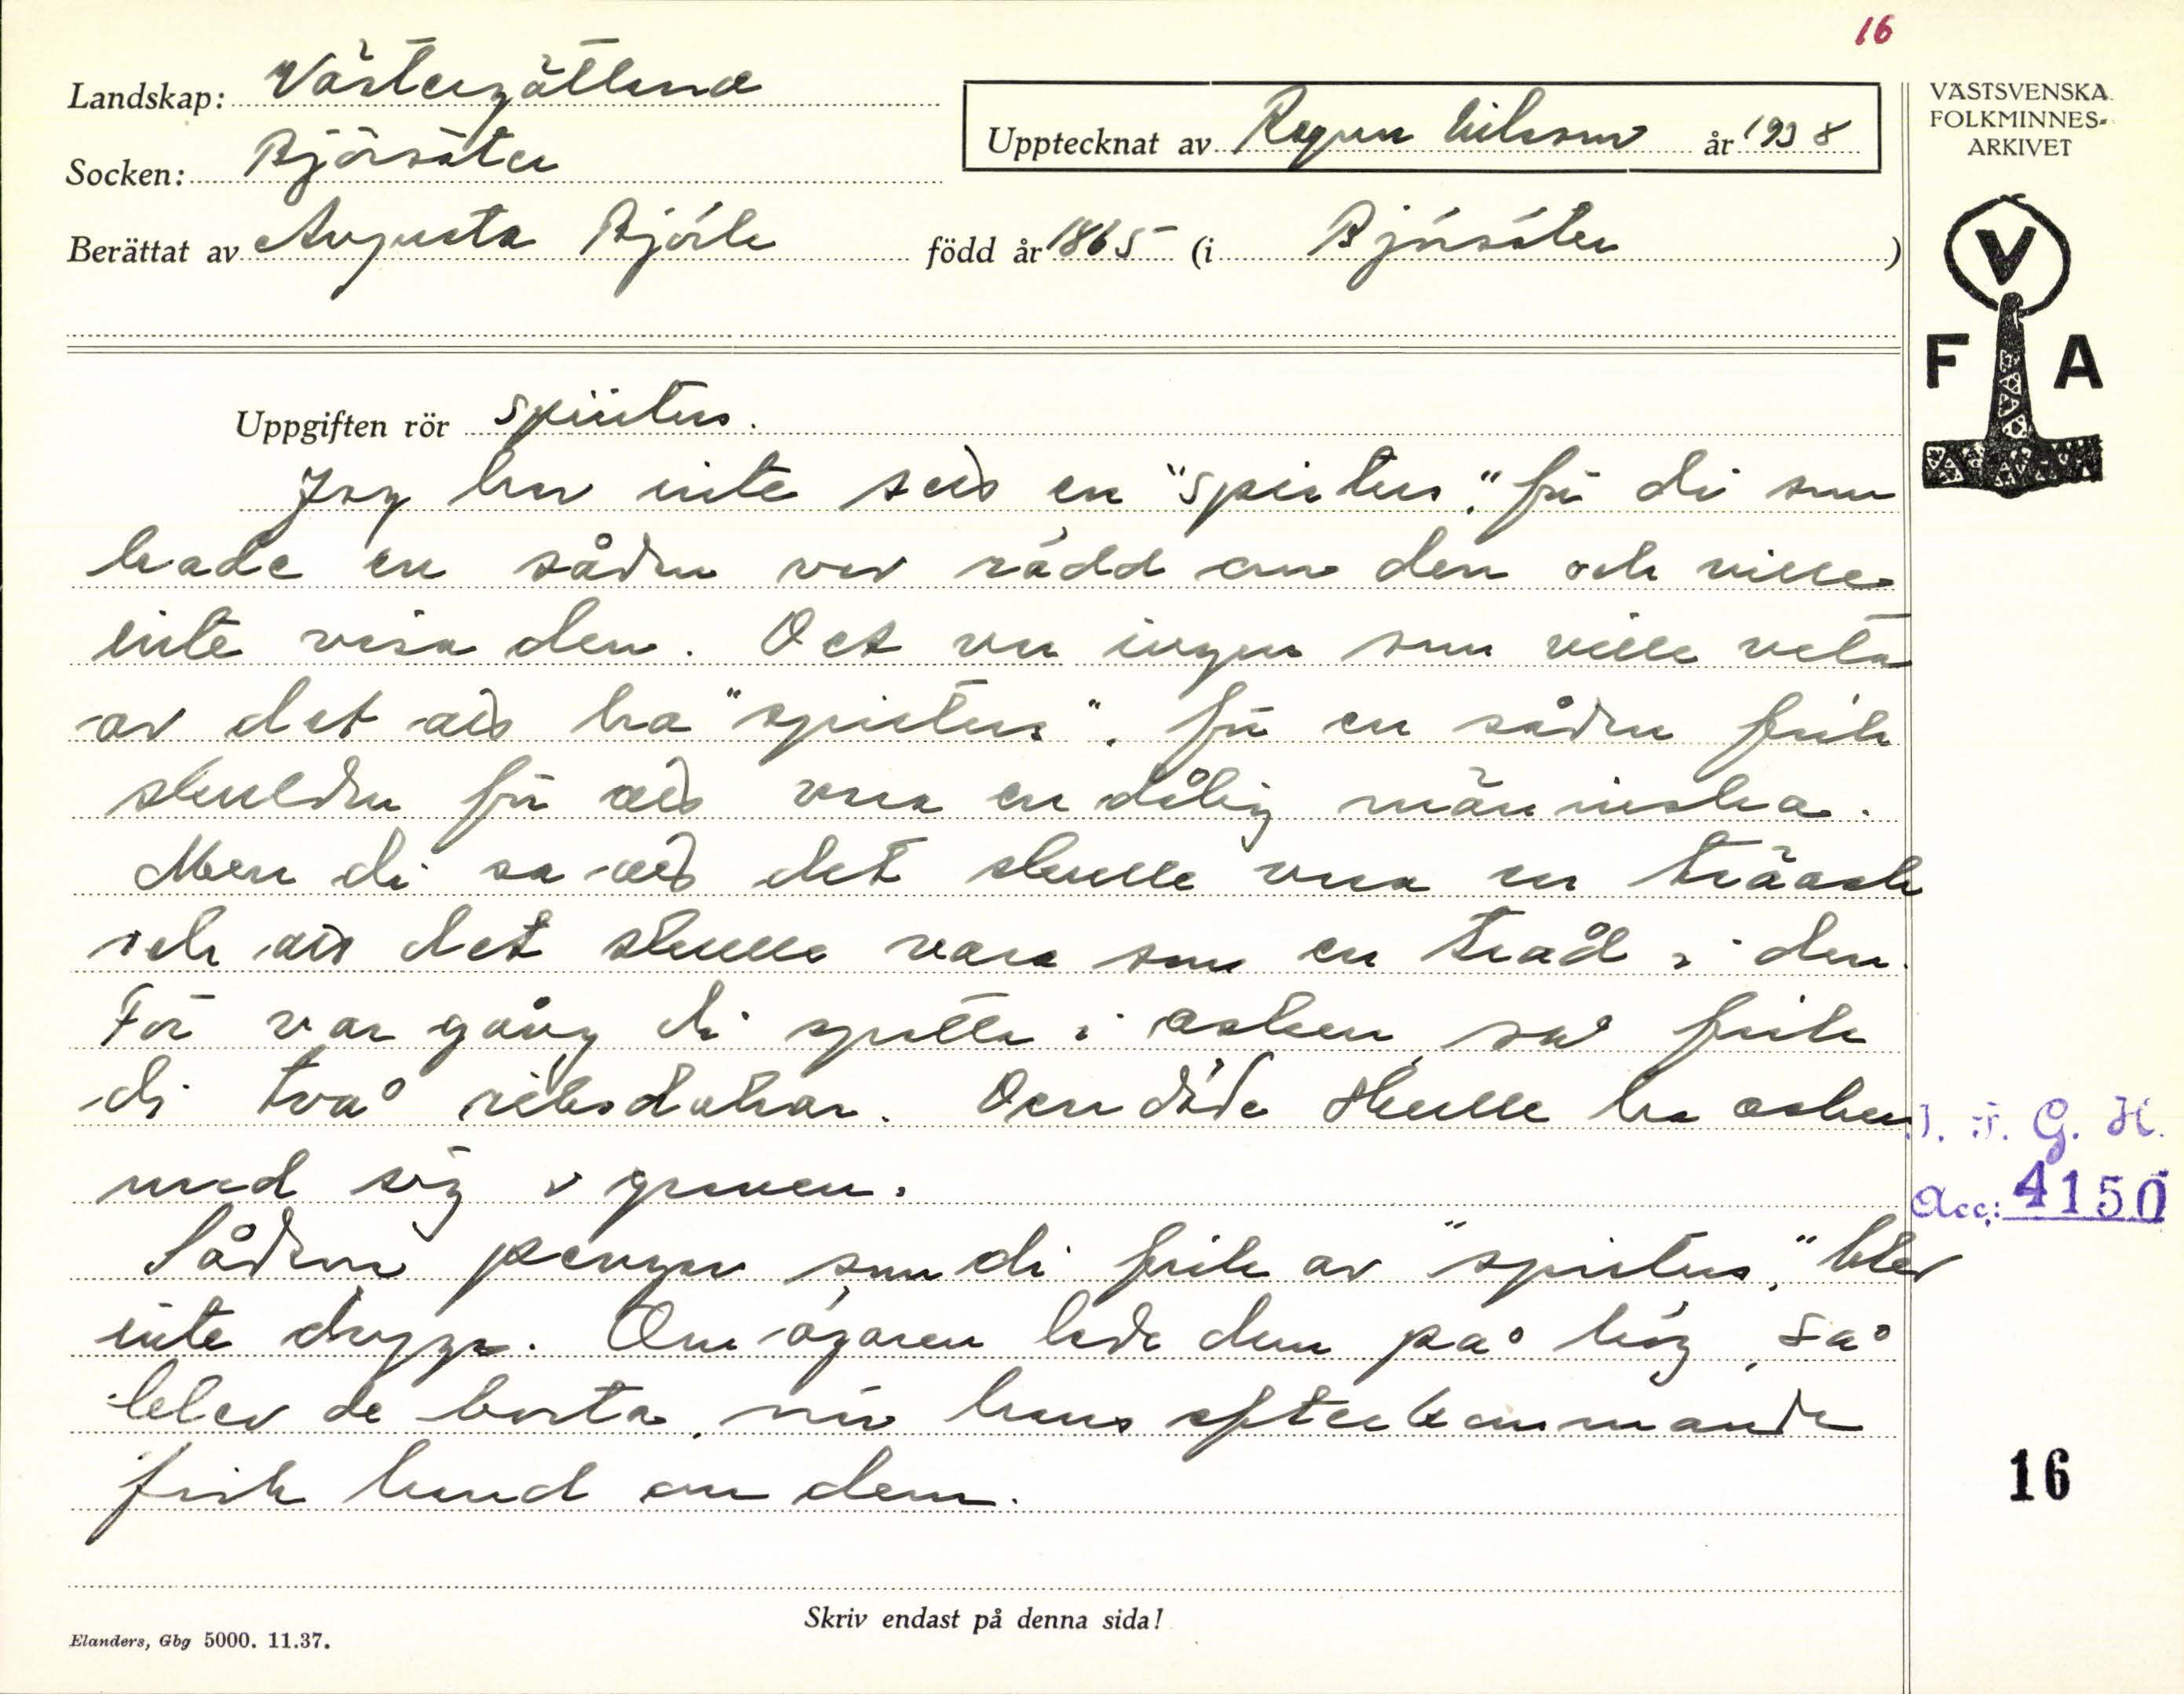 16
Landskap: Västergötland
Socken: Björsäter
Upptecknat av Ragnar Nilsson år 1938
Berättat av Augusta Björk född år 1865 (i Björsäter)
VÄSTSVENSKA
FOLKMINNES-
ARKIVET
V
F A
Uppgiften rör spiritus.
Jag har inte sett en "spiritus", för di som
hade en sådan var rädd om den och ville
inte visa den. Det var ingen som ville veta
av det att ha "spiritus", för en sådan fick
skulden för att vara en dålig människa.
Men di sa att det skulle vara en träask
och att det skulle vara som en tråd i den.
För var gång di spotta i asken, så fick
di två riksdalrar. Den döde skulle ha asken
med sig i graven.
Sådana pengar som di fick av "spiritus", blev
inte dryga. Om ägaren lade dem på hög, så
blev de borta, när hans efterkommande
fick hand om dem.
I. F. G. H.
Acc: 4150
16
Skriv endast på denna sida!
Elanders, Gbg 5000. 11.37.